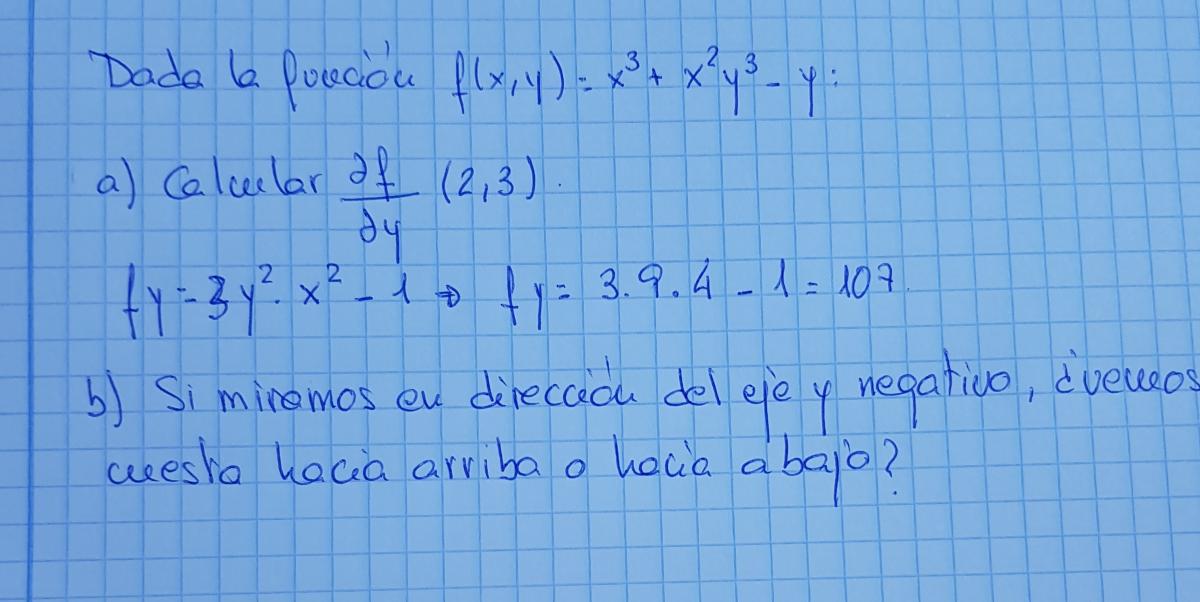 Dada la función f(x,y) = x³ + x²y³ - y:
a) Calcular ∂f/∂y (2,3).
fy = 3y². x² - 1 → fy = 3.9.4 - 1 = 107.
b) Si miramos en dirección del eje y negativo, ¿vemos
cuesta hacia arriba o hacia abajo?